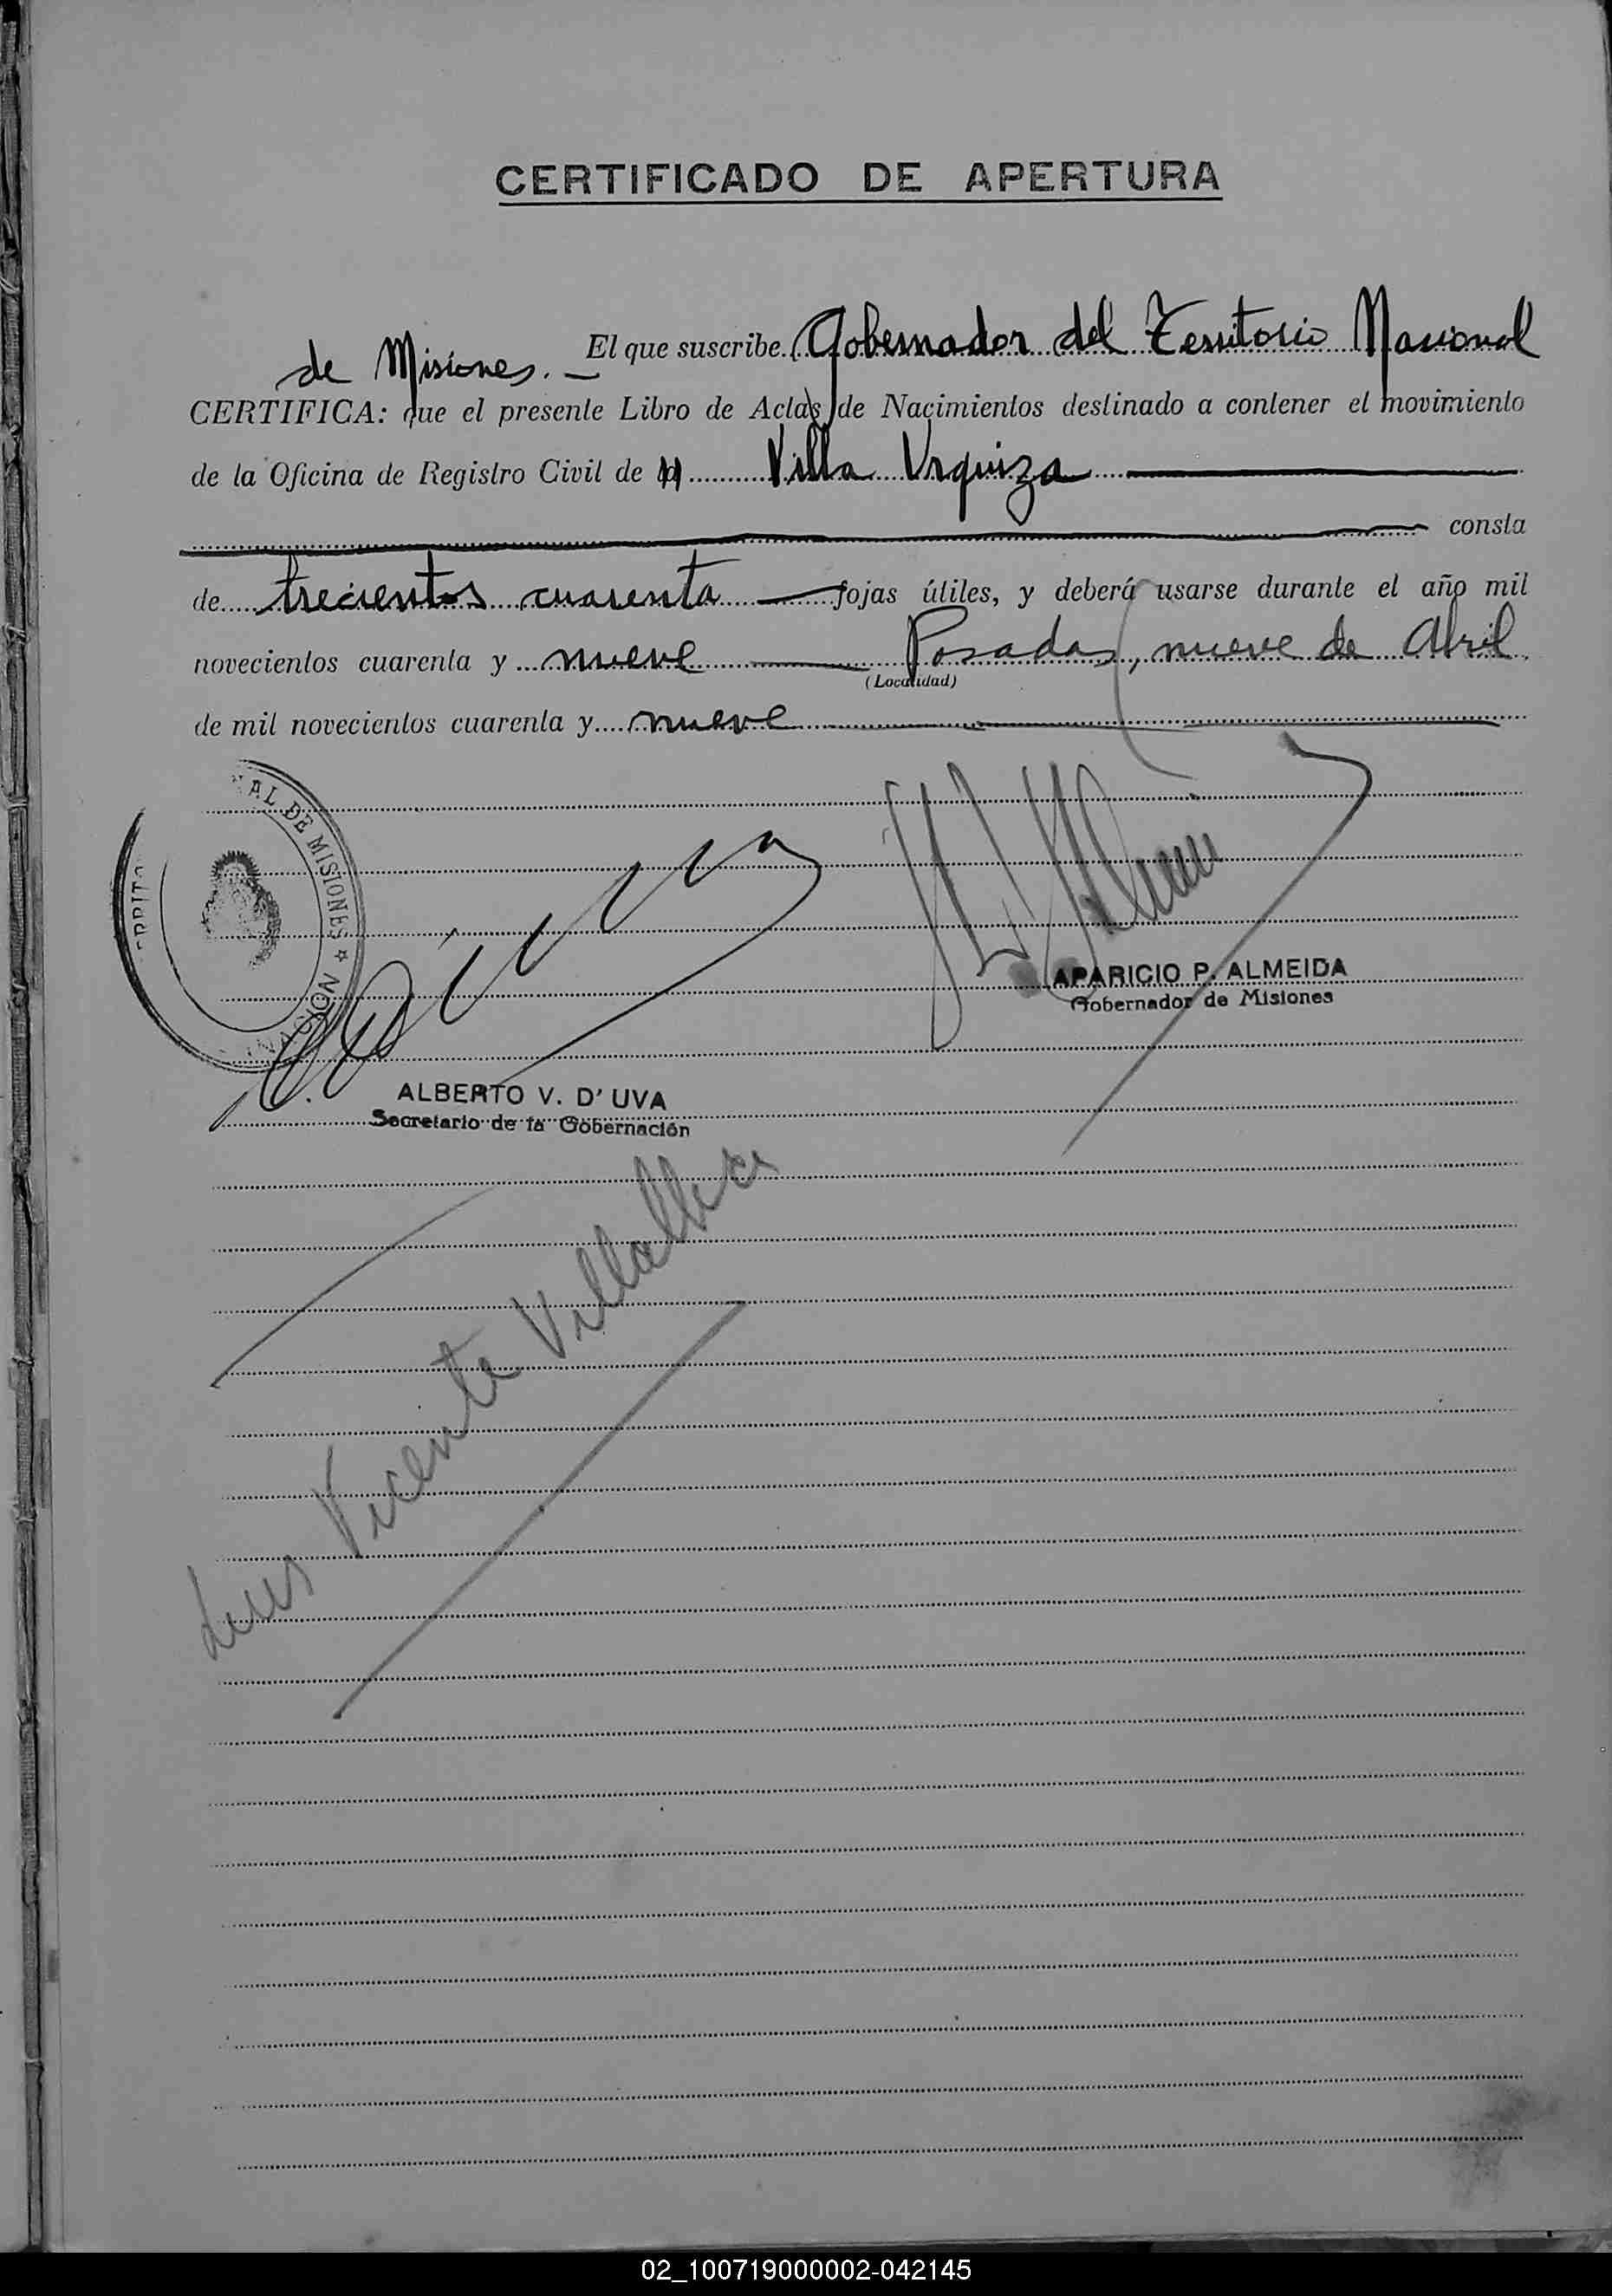 CERTIFICADO DE APERTURA
El que suscribe Gobernador del Territorio Nacional
de Misiones. —
CERTIFICA: que el presente Libro de Actas de Nacimientos destinado a contener el movimiento
de la Oficina de Registro Civil de Villa Urquiza
consta
de trecientos cuarenta fojas útiles, y deberá usarse durante el año mil
novecientos cuarenta y nueve Posadas, nueve de Abril
(Localidad)
de mil novecientos cuarenta y nueve
AL DE MISIONES ★ NACION
APARICIO P. ALMEIDA
Gobernador de Misiones
ALBERTO V. D' UVA
Secretario de la Gobernación
Luis Vicente Villalba
02_100719000002-042145